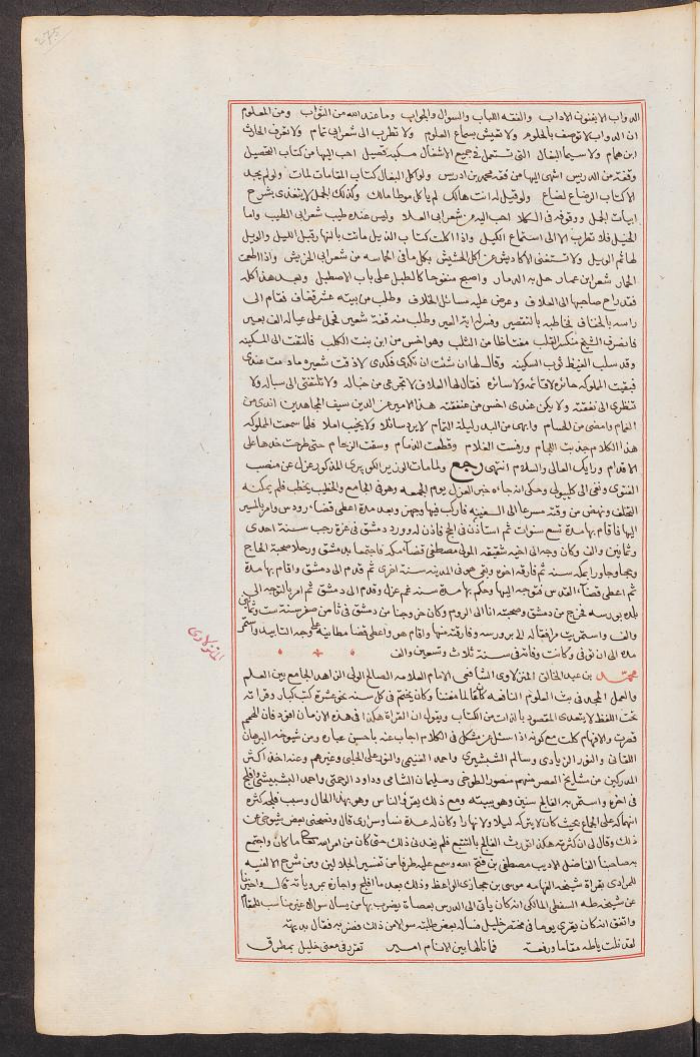 275
الدواب لا يفنون الاداب والفقه اللباب والسوال والجواب وما عند الله من الثواب ومن المعلوم
ان الدواب لا توصف بالحلوم ولا تعيش بسماع العلوم ولا تطرب الى شعر ابى تمام ولا تعرف الحارث
ابن همام ولا سيما البغال التى تستعمل فى جميع الاشغال مسكبه قصيل احب اليها من كتاب التحصيل
وقفة من الدريس اشهى اليها من فقه محمد بن ادريس ولو اكل البغال كتاب المقامات لمات ولو لم يجد
الا كتاب الرضاع لضاع ولو قيل له انت هالك لم ياكل موطا مالك وكذلك الجمل لا يتغذى بشرح
ابيات الجمل ووقوفه فى الكلا احب اليه من شعر ابى العلا وليس عنده طيب شعر ابى الطيب واما
الخيل فلا تطرب الا الى استماع الكيل واذا اكلت كتاب الذيل ماتت بالنهار قبل الليل والويل
لها ثم الويل ولا تستغنى الاكاديش عن اكل الحشيش بكل ما فى الحماسه من شعر ابى الحريش واذا اطعمت
الحمار شعر ابن عمار حل به الدمار واصبح منفوخا كالطبل على باب الاصطبل وبعد هذا كله
فقد راح صاحبها الى العلاف وعرض عليه مسائل الخلاف وطلب من بيته عشر قفاف فقام الى
راسه بالخفاف فخاطبه بالتقصير وفسر له اية العير وطلب منه قفة شعير فحمل على عياله الف بعير
فانصرف الشيخ منكسر القلب مغتاظا من الثلب وهو اخس من ابن بنت الكلب فالتفت الى المسكينه
وقد سلب الغيظ ثوب السكينه وقال لها ان شئت ان تكدى فكدى لا ذقت شعيره ما دمت عندى
فبقيت المملوكه حائره لا قائمه ولا سائره فقال لها العلاف لا تجزعى من خباله ولا تلتفتى الى سباله ولا
تنظرى الى نفقته ولا يكن عندى اخس من عنفقته هذا الامير عز الدين سيف المجاهدين اندى من
الغمام وامضى من الحسام وابهى من البدر ليلة التمام لا يرد سائلا ولا يخيب املا فلما سمعت المملوكه
هذا الكلام جذبت اللجام ورفست الغلام وقطعت الزمام وشقت الزحام حتى طرحت خدها على
الاقدام ورايك العالى والسلام انتهى رجع ولما مات الوزير الكوپرى المذكور عزل عن منصب
الفتوى ونفى الى كليبولى وحكى انه جاءه خبر العزل يوم الجمعه وهو فى الجامع والخطيب يخطب فلم يمكنه
التخلف ونهض من وقته مسرعا الى السفينه فاركب فيها وجهز وبعد مدة اعطى قضاء رودس وامر بالمسير
اليها فاقام بها مدة تسع سنوات ثم استاذن فى الحج فاذن له وورد دمشق فى غرة رجب سنة احدى
وثمانين والف وكان وجه الى اخيه شقيقه المولى مصطفى قضاء مكه فاجتمعا بدمشق ورحلا صحبة الحاج
وحجا وجاورا بمكه سنة ثم فارقه اخوه وبقى هو فى المدينه سنة اخرى ثم قدم الى دمشق واقام بها مدة
ثم اعطى قضاء القدس فتوجه اليها وحكم بها مدة سنة ثم عزل وقدم الى دمشق ثم امر بالتوجه الى
بلده بورسه فخرج من دمشق وصحبته انا الى الروم وكان خروجنا من دمشق فى ثامن صفر سنة ست وثمانين
والف واستمريت مرافقا له الى بورسه وفارقته منها واقام هو واعطى قضا مغانيه على وجه التابيد واستمر
مده الى ان توفى وكانت وفاته فى سنة ثلاث وتسعين والف
المنزلاوى
محمد بن عبد الخالق المنزلاوى الشافعى الامام العلامه الصالح الولى الزاهد الجامع بين العلم
والعمل المجد فى بث العلوم النافعه كان عالما مفننا وكان يختم فى كل سنه نحو عشرة كتب كبار وقراته
تحت اللفظ لا يتعدى المقصود بالذات من الكتاب ويقول ان القراة هكذا فى هذه الازمان افود فان الهمم
قصرت والافهام كلت مع كونه اذا سئل عن مشكل فى الكلام اجاب عنه باحسن عباره ومن شيوخه البرهان
اللقانى والنور الزيادى وسالم الشبشيرى واحمد الغنيمى والنور على الحلبى وغيرهم وعنه اخذ اكثر
المدركين من مشايخ العصر منهم منصور الطوخى وسليمان الشامى وداود الرحمتى واحمد البشبيشى وافلج
فى اخره واستمر به الفالج سنين وهو ببيته ومع ذلك يعرف الناس وهو بهذا الحال وسبب فالجه كثرة
انهماكه على الجماع بحيث كان لا يتركه ليلا ولا نهارا وكان له عدة نسا وسرارى قال ونصحنى بعض شيوخى عن
ذلك وقال لى ان كثرته هكذا تورث الفالج بالتتبع فلم يفدنى ذلك حتى كان من امر الله تعالى ما كان واجتمع
به صاحبنا الفاضل الاديب مصطفى بن فتح الله وسمع عليه طرفا من تفسير الجلالين ومن شرح الالفيه
للمرادى بقراة شيخه الفهامه موسى بن حجازى الواعظ وذلك بعد ما افلج واجازه بمروياته قال واخبرنا
عن شيخه طه السفطى المالكى انه كان ياتى الى الدرس بعصاة يضرب بها من يسال سوالا غير مناسب للمقام
واتفق انه كان يقرى يوما فى مختصر خليل فساله بعض طلبته سوالا من ذلك فضربه فقال بديهة
لقد نلت يا طه مقاما ورفعة فما نالها بين الانام امير تقرر فى معنى خليل بمطرق